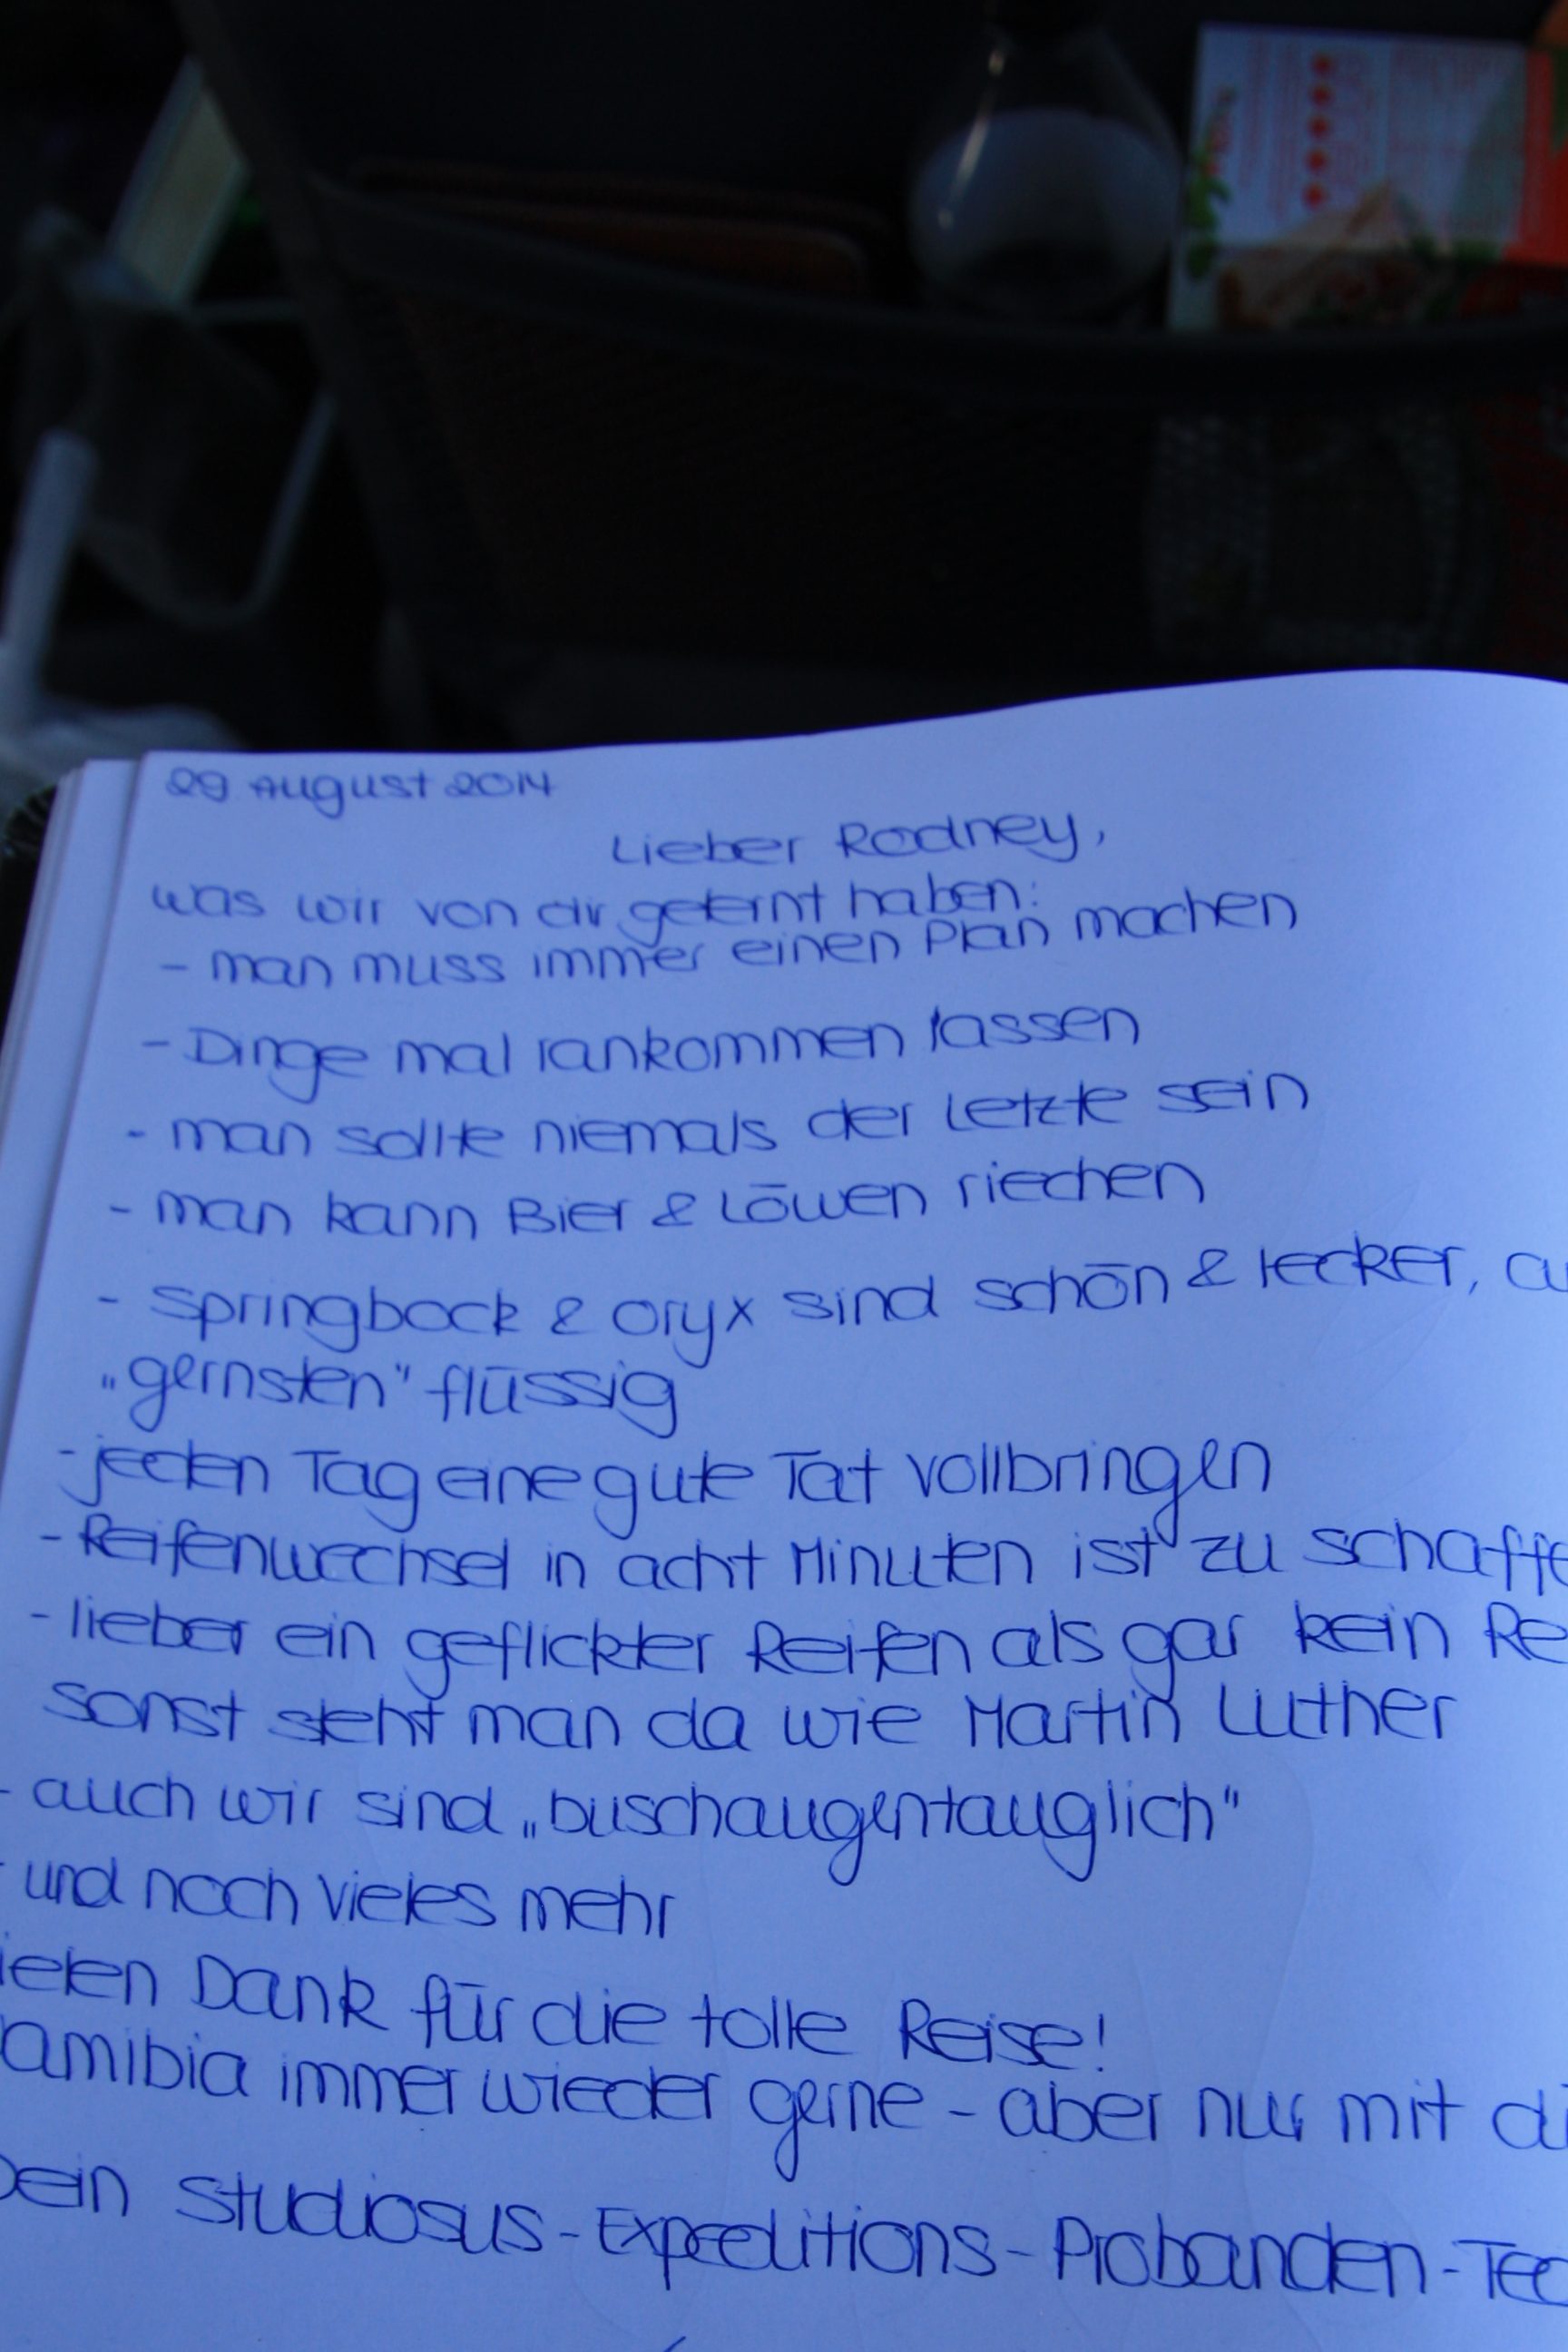 29 August 2014
Lieber Rodney,
was wir von dir gelernt haben:
- man muss immer einen Plan machen
- Dinge mal rankommen lassen
- man sollte niemals der Letzte sein
- man kann Bier & Löwen riechen
- Springbock & Oryx sind schön & lecker,
„gernsten" flüssig
- jeden Tag eine gute Tat vollbringen
- Reifenwechsel in acht Minuten ist zu schaffe
- lieber ein geflickter Reifen als gar kein Re
sonst steht man da wie Martin Luther
- auch wir sind „buschaugentauglich"
- und noch vieles mehr
ielen Dank für die tolle Reise!
amibia immer wieder gerne - aber nur mit di
Dein Studiosus-Expeditions-Probanden-Tea